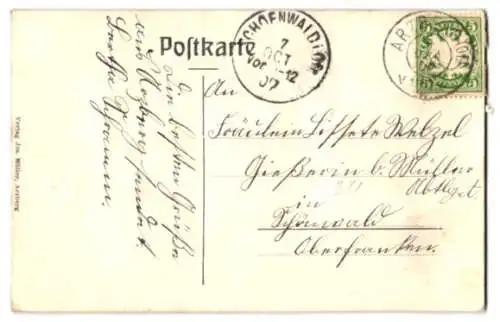 Postkarte
SCHOENWALD i. Ofr.
7
OCT
Vor. 8-12
07
ARZ
5 5
5 5
An
Fräulein Lissete Welzel
Gießerin b. Müller
in
Schönwald
Oberfranken.
Die besten Grüße
aus Arzberg sendet
Verlag Jos. Müller, Arzberg